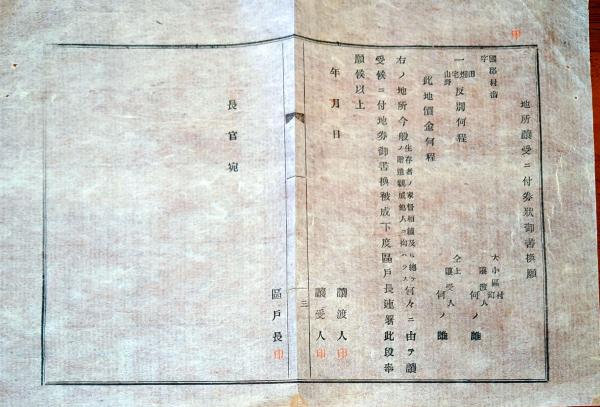 地所讓受ニ付券狀御書換願
大小區町村
國郡村街
字
讓渡人
何ノ誰
田畑宅山野
一反別何程
仝上
讓受人
何ノ誰
此地價金何程
右ノ地所今般生存者ノ家督相續及ヒ總テノ贈遺親戚他人ニ拘ハラス何々ニ由テ讓
受候ニ付地券御書換被成下度區戶長連署此段奉
願候以上
讓渡人印
年月日
讓受人印
三
長官宛
區戶長印
印